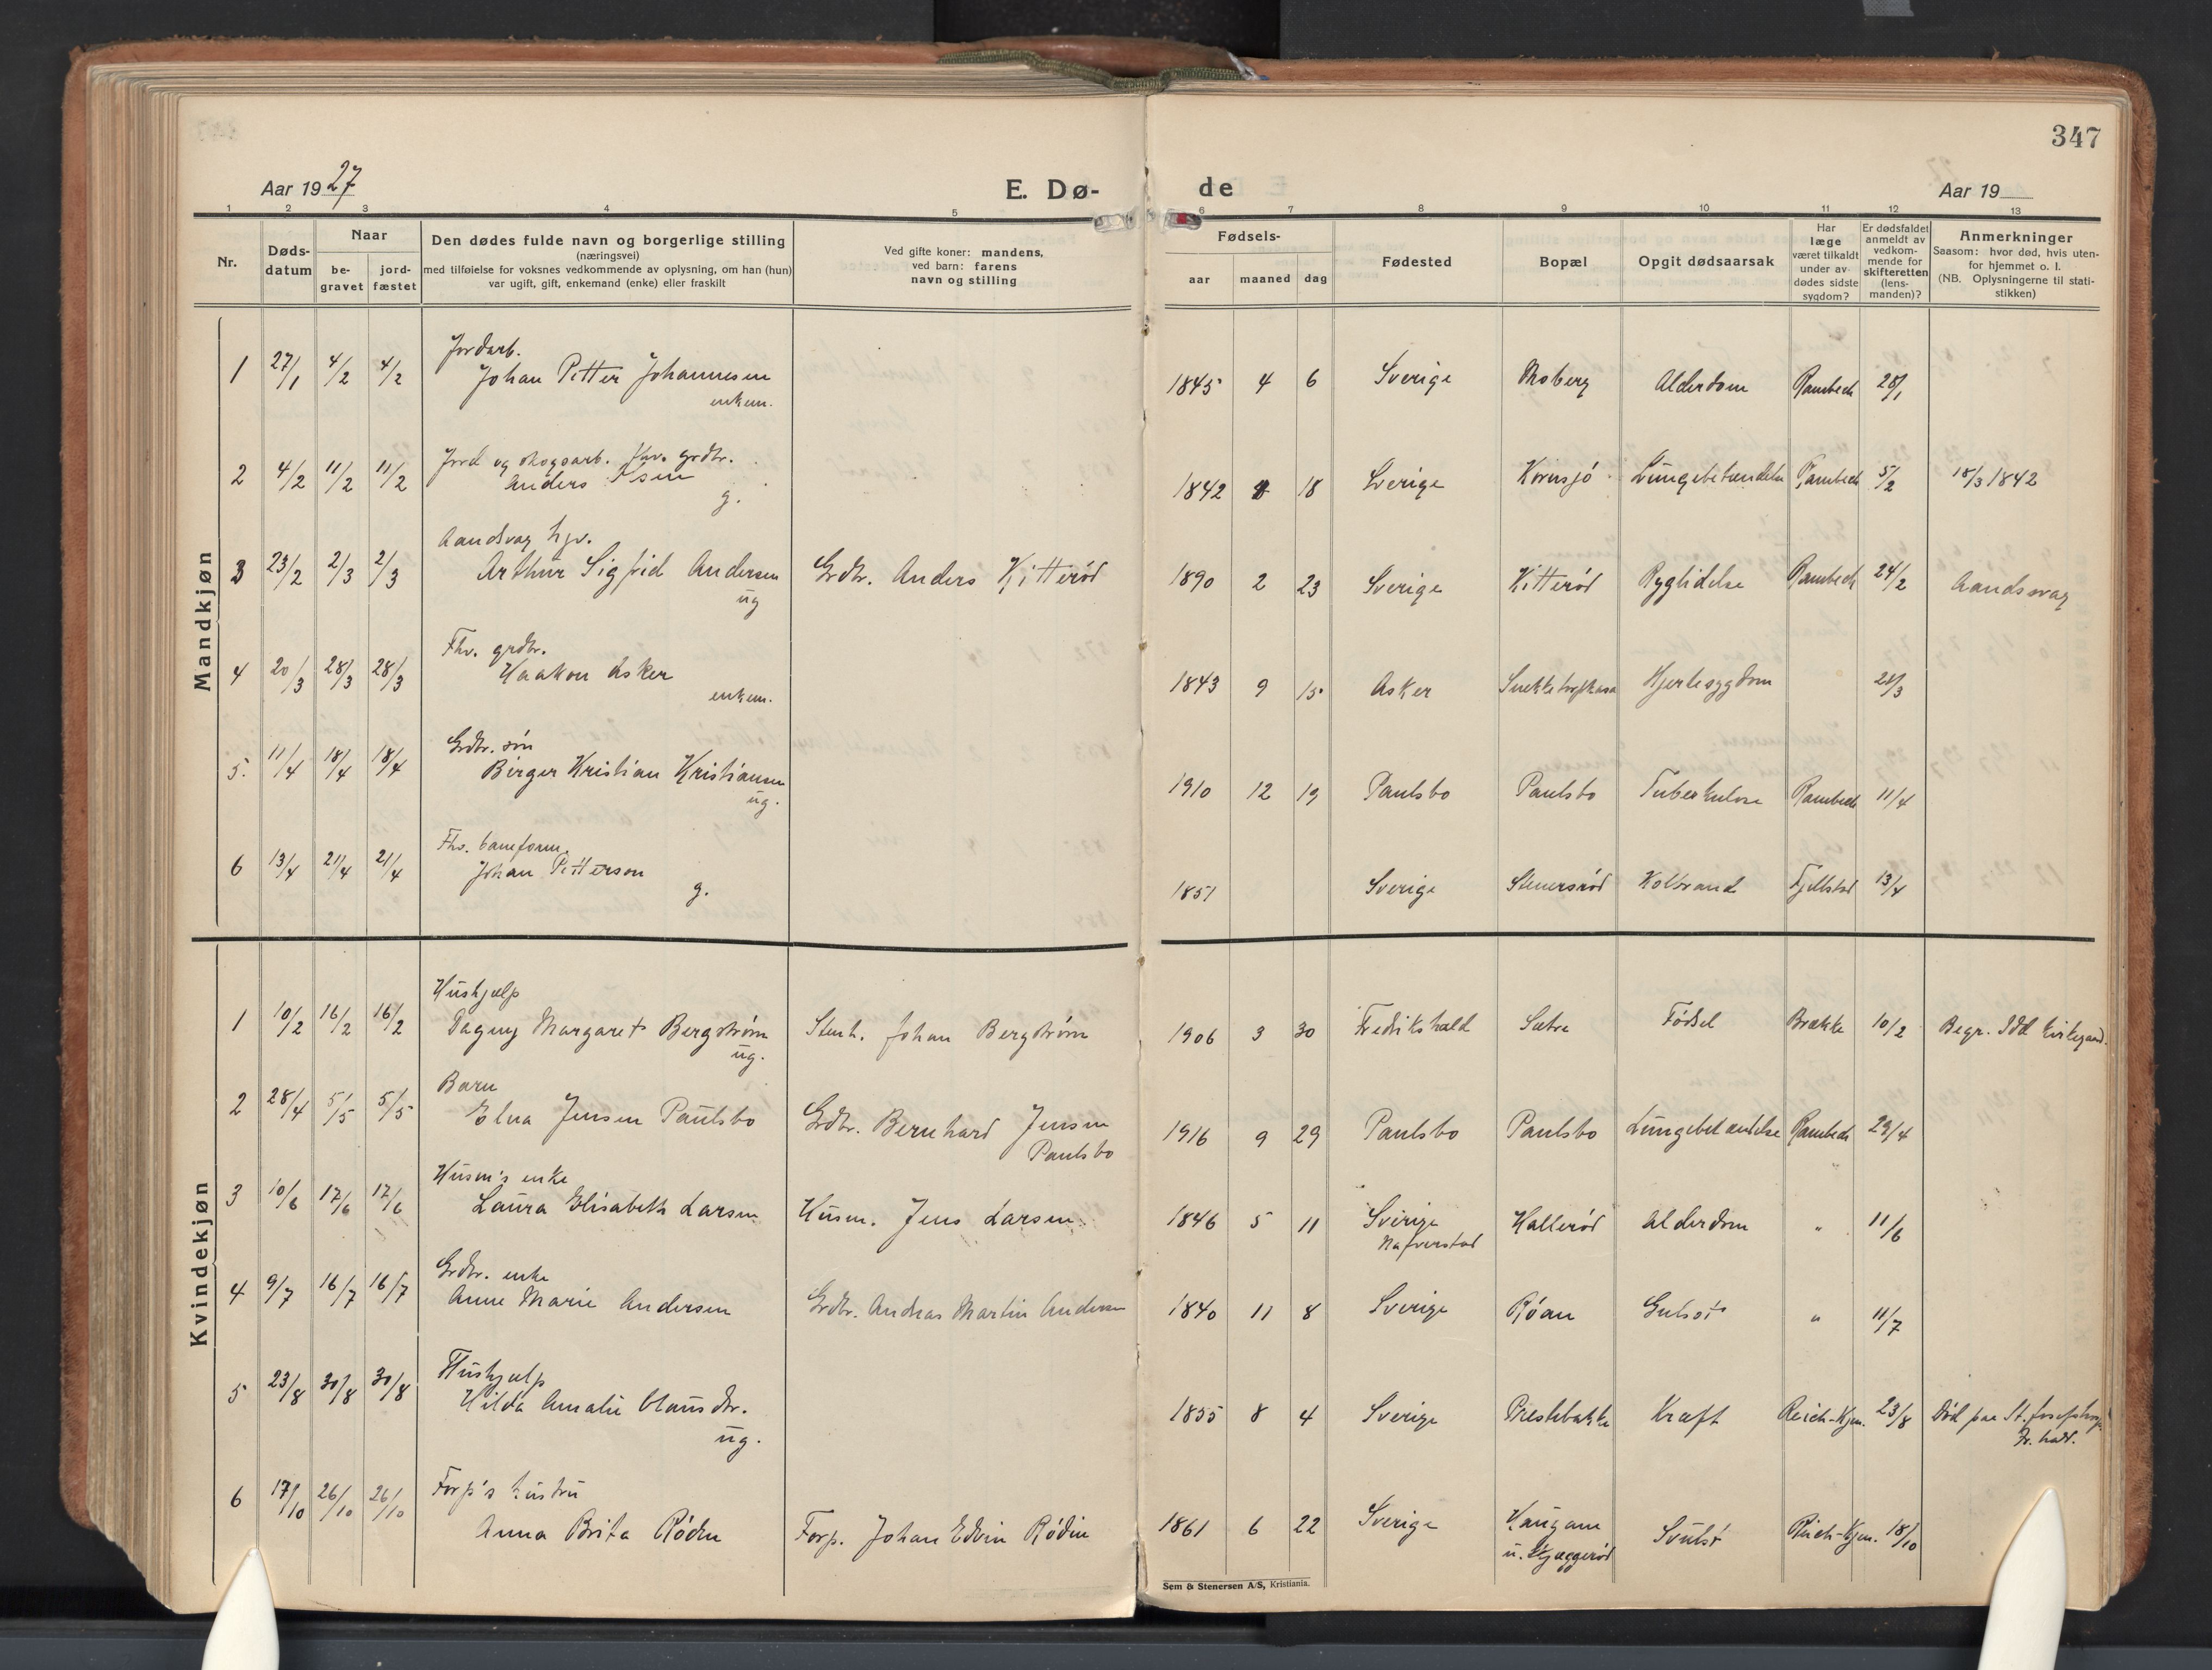 347
Aar 1927
E. Dø-
de
Aar 19
1 2 3 4 5 6 7 8 9 10 11 12 13
Nr.
Døds-
datum
Naar
be-
gravet
jord-
fæstet
Den dødes fulde navn og borgerlige stilling
(næringsvei)
med tilføielse for voksnes vedkommende av oplysning, om han (hun)
var ugift, gift, enkemand (enke) eller fraskilt
Ved gifte koner: mandens,
ved barn: farens
navn og stilling
Fødsels-
aar maaned dag
Fødested
Bopæl
Opgit dødsaarsak
Har
læge
været tilkaldt
under av-
dødes sidste
sygdom?
Er dødsfaldet
anmeldt av
vedkom-
mende for
skifteretten
(lens-
manden)?
Anmerkninger
Saasom: hvor død, hvis uten-
for hjemmet o. l.
(NB. Oplysningerne til stati-
stikken)
Mandkjøn
Jordarb.
1 27/1 4/2 4/2 Johan Petter Johannesen 1845 4 6 Sverige Moberg Alderdom Rambech 28/1
enkem.
Jord og skogsarb. Fhv. grdbr.
2 4/2 11/2 11/2 Anders Olsen 1842 18 Sverige Kornsjø Lungebetændelse Rambech 5/2 18/3 1842
g.
Aandsvag hjv.
3 23/2 2/3 2/3 Arthur Sigfrid Andersen Grdbr. Anders Kitterød 1890 2 23 Sverige Kitterød Ryglidelse Rambech 24/2 Aandssvag
ug
Fhv. grdbr.
4 20/3 28/3 28/3 Haakon Asker 1843 9 15 Asker Hjertesygdom 21/3
enkem.
Grdbr. søn
5. 11/4 18/4 18/4 Birger Kristian Kristiansen 1910 12 19 Paulsbo Paulsbo Tuberkulose Rambech 11/4
ug.
Fhv. baneform.
6 13/4 21/4 21/4 Johan Petterson 1851 Sverige Stenersrød Kolbrand Fjellstad 13/4
g.
Kvindekjøn
Hushjælp
1 10/2 16/2 16/2 Dagny Margaret Bergstrøm Stenh. Johan Bergstrøm 1906 3 30 Fredrikshald Sætre Fødsel Brække 10/2 Begr. Idd kirkegaard.
ug.
Barn
2 28/4 5/5 5/5 Elna Jensen Paulsbo Grdbr. Bernhard Jensen
Paulsbo 1916 9 29 Paulsbo Paulsbo Lungebetændelse Rambech 29/4
Husm's enke
3 10/6 17/6 17/6 Laura Elisabeth Larsen Husm. Jens Larsen 1846 5 11 Sverige
Nafverstad Hallerød Alderdom " 11/6
Grdbr. enke
4 9/7 16/7 16/7 Anne Marie Andersen Grdbr. Andreas Martin Andersen 1840 11 8 Sverige Røan Gulsot " 11/7
Hushjælp
5 23/8 30/8 30/8 Hilda Amalie Clausdtr. 1855 8 4 Sverige Prestebakke Kræft Reich-Kjen. 23/8 Død paa St. Josefshosp.
Fr.hald.
ug.
Forp's hustru
6 17/10 26/10 26/10 Anna Brita Rødin Forp. Johan Edvin Rødin 1861 6 22 Sverige Haugam
u. Kjæggerød Svulst Reich-Kjen. 18/10
Sem & Stenersen A/S, Kristiania.